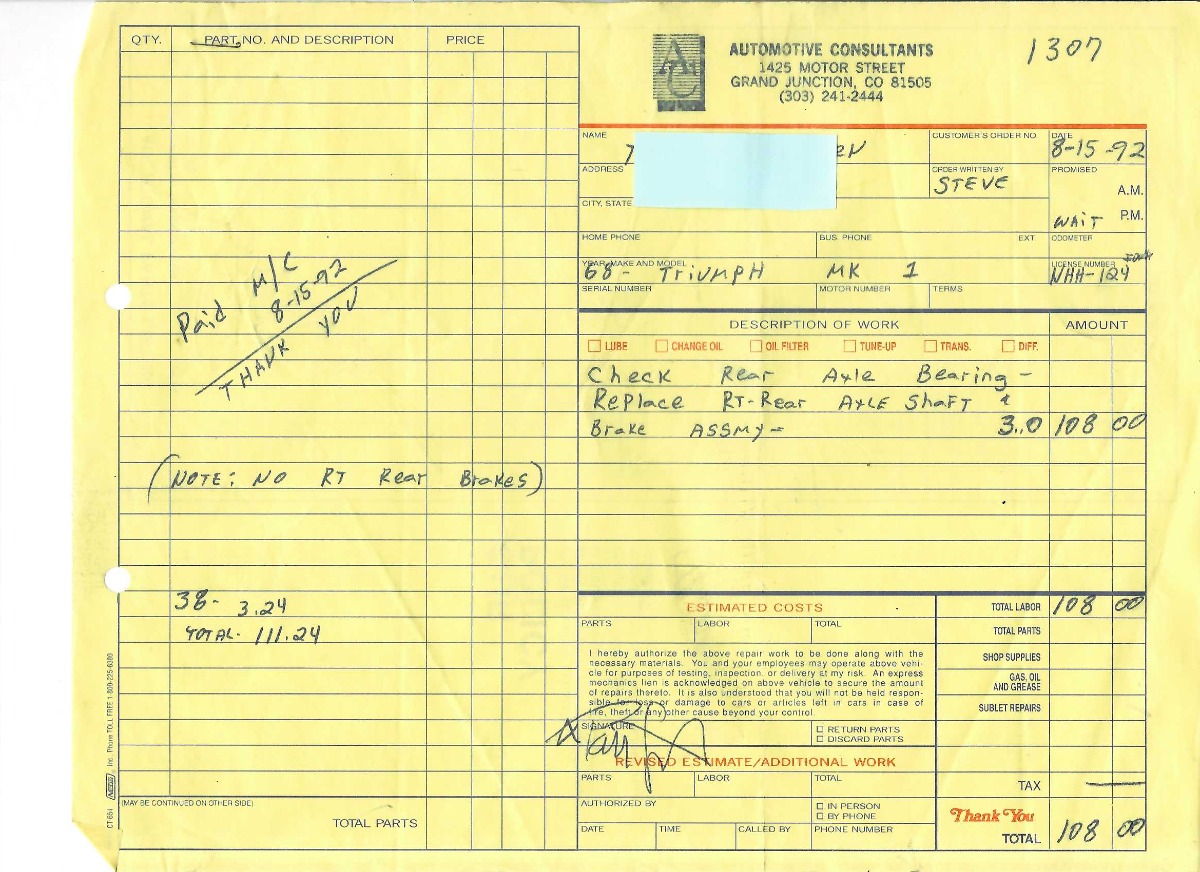 QTY. PART NO. AND DESCRIPTION PRICE
Paid M/C
8-15-92
THANK YOU
(NOTE: NO RT Rear Brakes)
38- 3.24
TOTAL- 111.24
(MAY BE CONTINUED ON OTHER SIDE)
TOTAL PARTS
AUTOMOTIVE CONSULTANTS
1425 MOTOR STREET
GRAND JUNCTION, CO 81505
(303) 241-2444
1307
NAME
CUSTOMER'S ORDER NO.
DATE
8-15-92
ADDRESS
ORDER WRITTEN BY
STEVE
PROMISED
A.M.
WAIT P.M.
CITY, STATE
HOME PHONE BUS. PHONE EXT. ODOMETER
YEAR, MAKE AND MODEL
68- TRIUMPH MK 1
LICENSE NUMBER
NHH-124
SERIAL NUMBER MOTOR NUMBER TERMS
DESCRIPTION OF WORK AMOUNT
LUBE CHANGE OIL OIL FILTER TUNE-UP TRANS. DIFF.
Check Rear Axle Bearing -
Replace RT-Rear AXLE Shaft &
Brake ASSMY- 3.0 108 00
ESTIMATED COSTS
PARTS LABOR TOTAL
I hereby authorize the above repair work to be done along with the
necessary materials. You and your employees may operate above vehi-
cle for purposes of testing, inspection, or delivery at my risk. An express
mechanics lien is acknowledged on above vehicle to secure the amount
of repairs thereto. It is also understood that you will not be held respon-
sible for loss or damage to cars or articles left in cars in case of
fire, theft or any other cause beyond your control.
SIGNATURE
RETURN PARTS
DISCARD PARTS
REVISED ESTIMATE/ADDITIONAL WORK
PARTS LABOR TOTAL
AUTHORIZED BY
IN PERSON
BY PHONE
DATE TIME CALLED BY PHONE NUMBER
TOTAL LABOR 108 00
TOTAL PARTS
SHOP SUPPLIES
GAS, OIL
AND GREASE
SUBLET REPAIRS
TAX
Thank You
TOTAL 108 00
Inc. Phone TOLL FREE 1-800-225-6380